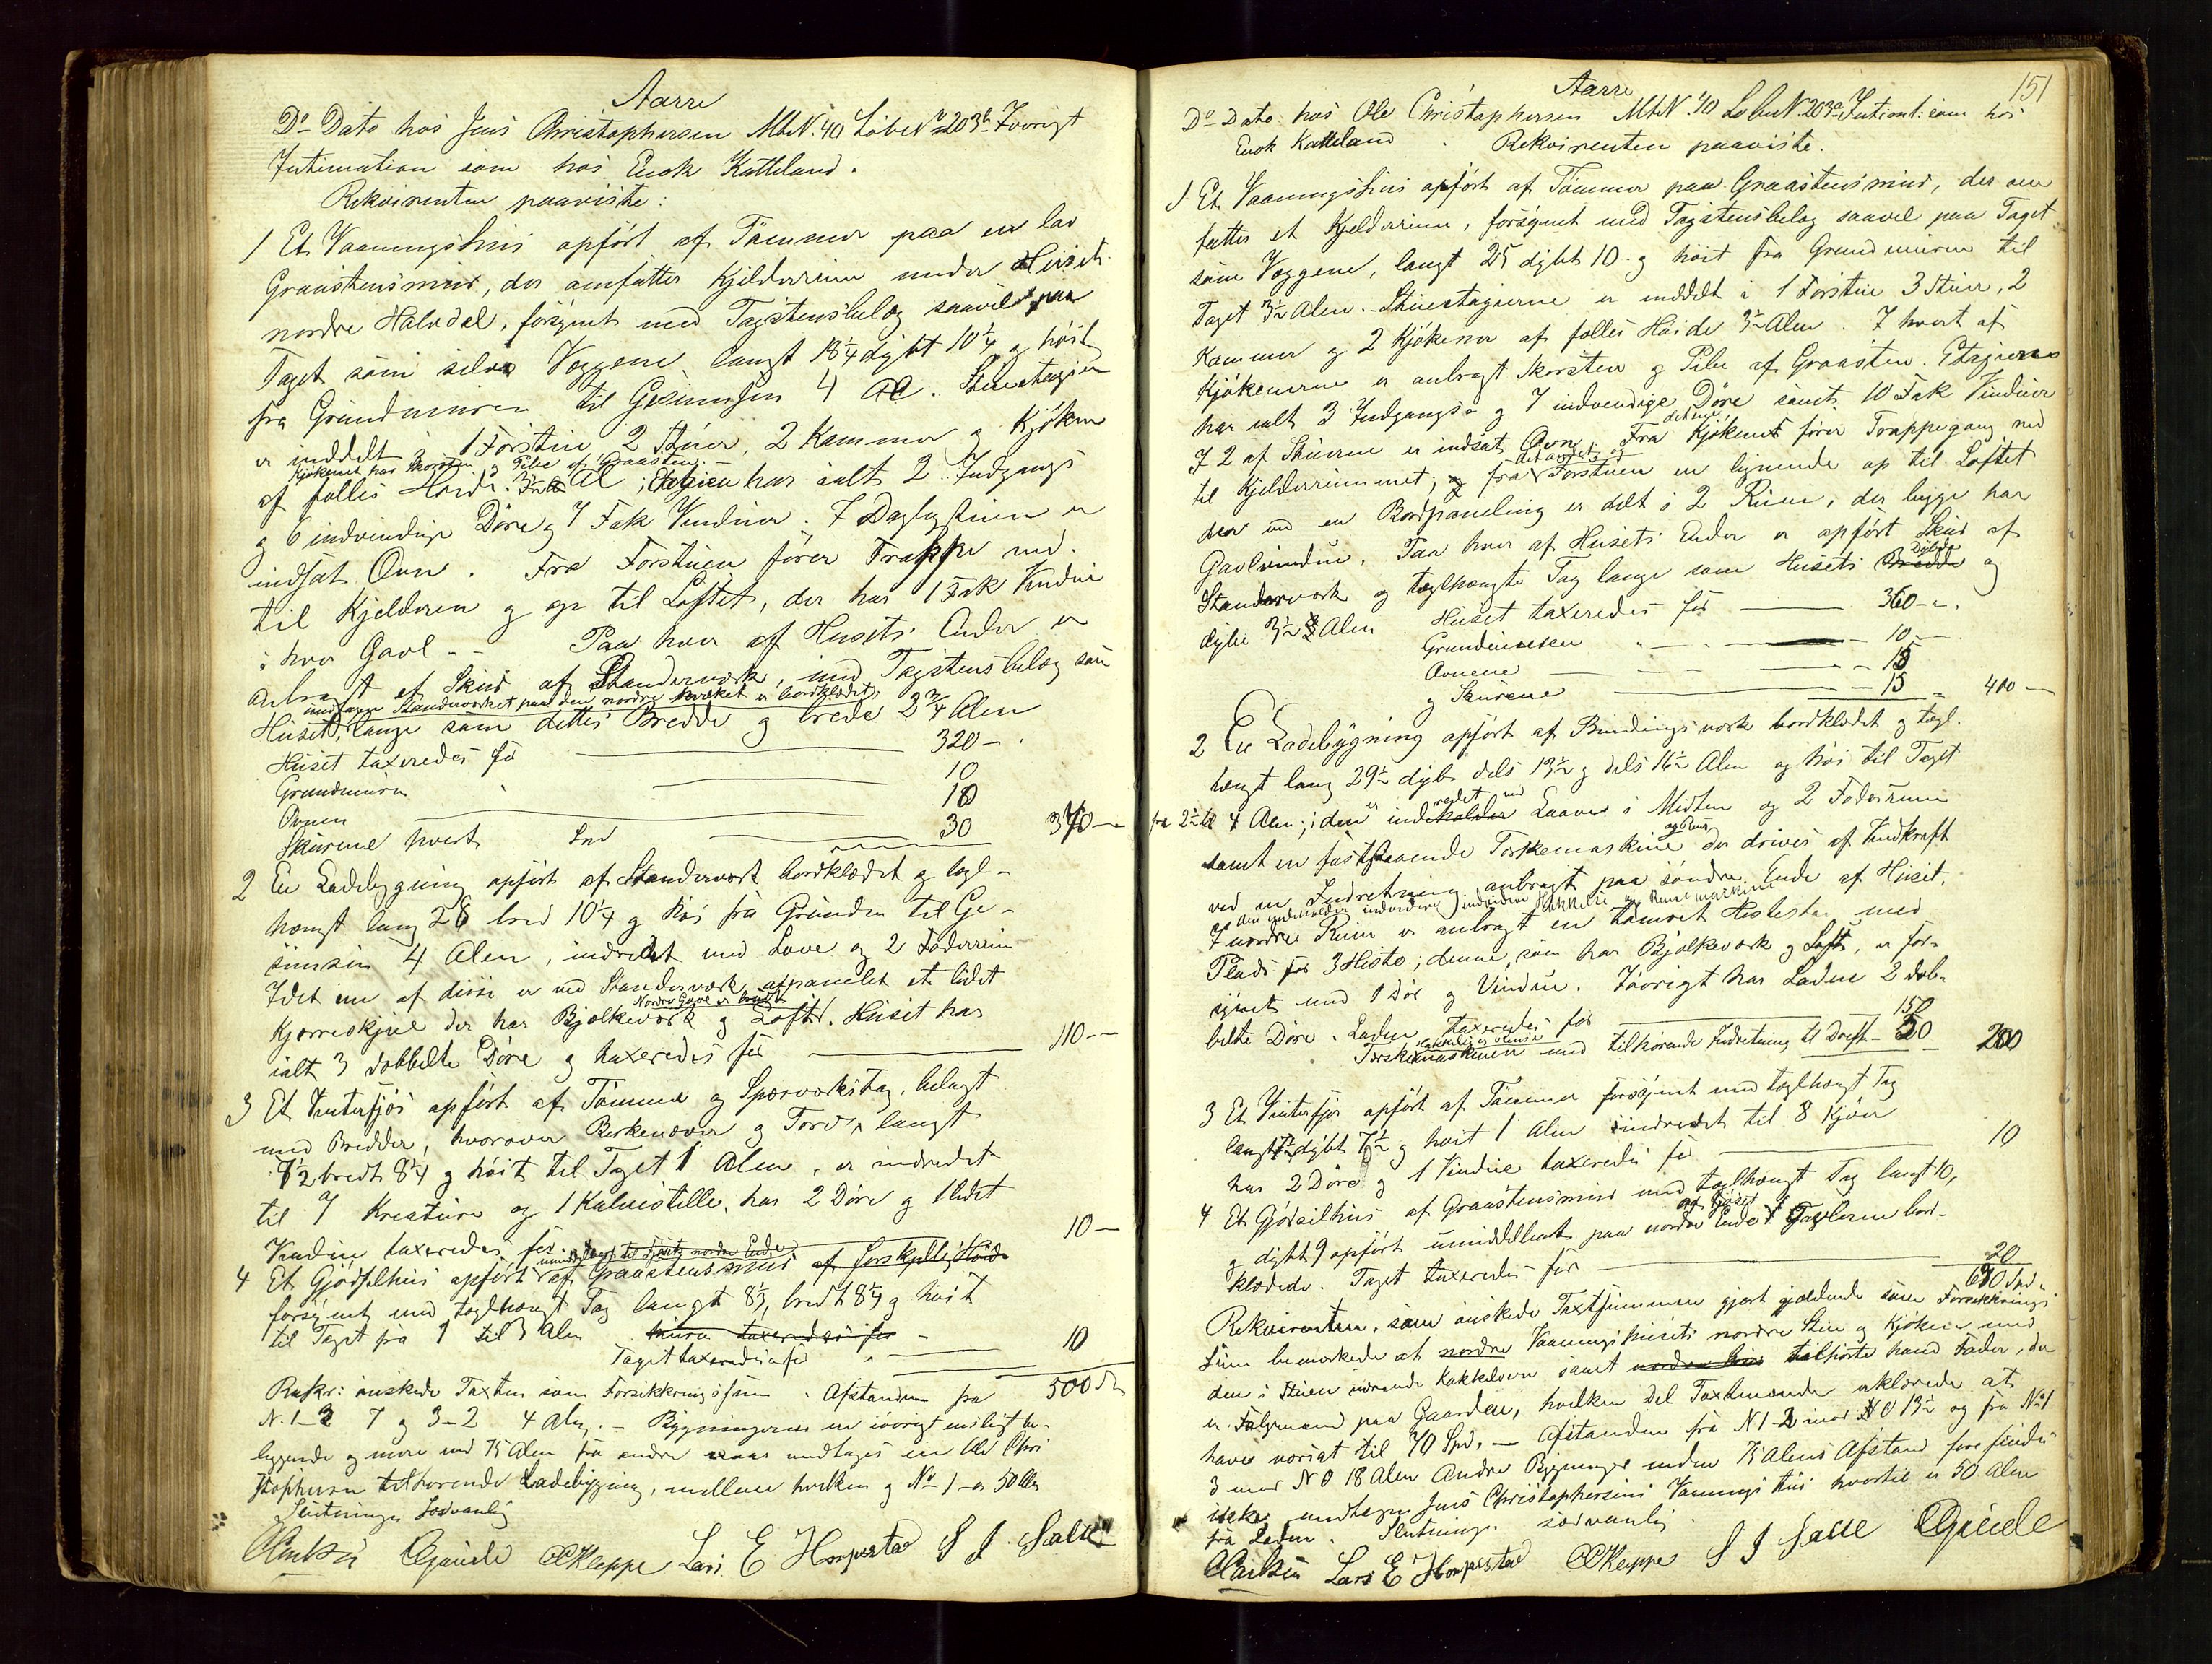 Aarre
Do Dato hos Jens Christophersen Mt.N. 40 Løbe No 203b Iøvrigt
Intimation som hos Enok Katteland.
Rekvirenten paaviste:
1 Et Vaaningshus opført af Tømmer paa en lav
Graastensmur, der omfatter Kjelderrum under Husets
nordre Halvdel, forsynet med Tagstensbelæg saavel paa
Taget som selve Væggene, langt 18 1/4 dybt 10 1/4 og høit
fra Grundmuren til Gesimsen 4 Al. Stueetagien
er inddelt i 1 Forstue 2 Stuer, 2 Kammer og Kjøkken
Kjøkenet har Skorsten og Pibe af Graasten
af fælles Høide 3 1/2 Al; Etagien har ialt 2 Indgangs
og 6 indvendige Døre og 7 Fak Vinduer. I Daglystuen er
indsat Ovn. Fra Forstuen fører Trappe ned
til Kjelderen og op til Loftet, der har 1 Fak Vindue
i hver Gavl - Paa hver af Husets Ender er
anbragt et Skur af Standerværk, med Tagstensbelæg som
undtagen Standerværket paa den nordre er bordklædet,
Huset, lange som dettes Bredde og brede 2 3/4 Alen
Huset taxeredes for 320 -
Grundmuren 10
Ovnen 10
Skurene hvert Spd 30 370 -
2 En Ladebygning opført af Standerværk bordklædet og tægl-
hængt lang 28 bred 10 1/4 og høi fra Grunden til Ge-
simsen 4 Alen, indredet med Love og 2 Foderrum
I det ene af disse er ved Standerværk afpanelet et lidet
Nordre Gavl er
Kjørreskjul der har Bjelkeværk og Loft. Huset har
ialt 3 dobbelte Døre og taxeredes for 110 -
3 Et Vinterfjøs opført af Tømmer og Spærværkstag, belagt
med Bredder, hvorover Birkenæver og Torv, langt
7 1/2 bredt 8 1/4 og høit til Taget 1 Alen, er indredet
til 7 Kreature og 1 Kalvestelle, har 2 Døre og 1 lidet
Vindue taxeredes for 10 -
til Fjøsets nordre Ende
4 Et Gjødselhus opført af Graastensmur af forskjellig Høide
forsynet med tæglhængt Tag langt 8 1/2, bredt 8 1/4 og høit
til Taget fra 1 til 3 Alen Muren taxeredes for -
Taget taxeredes for 10
Rekv: ønskede Taxten som Forsikkringssum. Afstanden fra 500 Spd
N. 1-2 7 og 3-2 4 Alen. - Bygningerne er iøvrigt ensligt be-
liggende og mere end 75 Alen fra andre naar undtages en Ole Chri
stophersen tilhørende Ladebygning, mellem hvilken og No 1 er 50 Alen
Slutningen Sædvanlig
Gjeide OKleppe Lars E Hompestad S J Salte
151
Aarre
Do Dato hos Ole Christophersen Mt.N. 40 Løbe N. 203a Intimt: som hos
Enok Katteland. Rekvirenten paaviste.
1 Et Vaaningshus opført af Tømmer paa Graastensmur, der om
fatter et Kjelderrum, forsynet med Tagstensbelæg saavel paa Taget
som Væggene, langt 25 dybt 10 og høit fra Grundmuren til
Taget 3 1/2 Alen. Stueetagierne er inddelt i 1 Forstue 3 Stuer, 2
Kammer og 2 Kjøkener af fælles Høide 3 1/2 Alen. I hvert af
Kjøkenerne er anbragt Skorsten og Pibe af Graasten. Etagierne
har ialt 3 Indgangs- og 7 indvendige Døre samt 10 Fak Vinduer
I 2 af Stuerne er indsat Ovne. Fra det ene Kjøkent fører Trappegang ned
til Kjelderrummet, og fra det andet og Forstuen en lignende op til Loftet
der ved en Bordpaneling er delt i 2 Rum, der begge har
Gavlvindue. Paa hver af Husets Ender er opført Skur af
Standerværk og tæglhængte Tag lange som Husets Bredde Dybde og
dybe 3 1/2 Alen. Huset taxeredes for 360 -
Grundmuren 10 -
Ovnene - 15
og Skurene - 15 400 -
2 En Ladebygning opført af Bindingsværk bordklædet og tægl.
hængt lang 29 1/2 dyb dels 13 1/2 og dels 16 1/2 Alen og høi til Taget
fra 2 1/2 til 4 Alen; i den er indredet med Laave i Midten og 2 Foderrum
samt en faststaaende Tærskemaskine der drives af Vindkraft
ved en Indretning anbragt paa søndre Ende af Huset.
I nordre Rum er anbragt en tømret Hestestal med
Plads for 3 Heste; denne, som har Bjelkeværk og Loft, er for-
synet med 1 Dør og Vindue. Iøvrigt har Laden 2 dob-
belte Døre. Laden taxeredes for 150
Tærskemaskinen med tilhørende Indretning til Drift - 50 200
3 Et Vinterfjøs opført af Tømmer forsynet med tæglhængt Tag
langt dybt 7 1/2 og høit 1 Alen indredet til 8 Kjøer
har 2 Døre og 1 Vindue taxeredes for 10
4 Et Gjødselhus af Graastensmur med tæglhængt Tag langt 10,
og dybt 9 opført umiddelbart paa nordre Ende af Fjøset Gavlerne bord-
klædede. Taget taxeredes for 20
630 Spd.
Rekvirenten, som ønskede Taxtsummen gjort gjældende som Forsikkrings
sum bemærkede at nordre Vaaningshusets nordre Stue og Kjøken med
den i Stuen værende Kakkelovn samt tilhørte hans Fader, der
er Følgemand paa Gaarden, hvilken Del Taxtmænderne erklærede at
have ansat til 70 Spd. - Afstanden fra N 1-2 mod NO 13 1/2 og fra No 1
3 mod NO 18 Alen Andre Bygninger inden 75 Alens Afstand forefindes
ikke undtagen Jens Christophersens Vaaningshus hvortil er 50 Alen
fra Laden. Slutning. sædvanlig.
Lars E Hompestad OKleppe S J Salte Gjeide